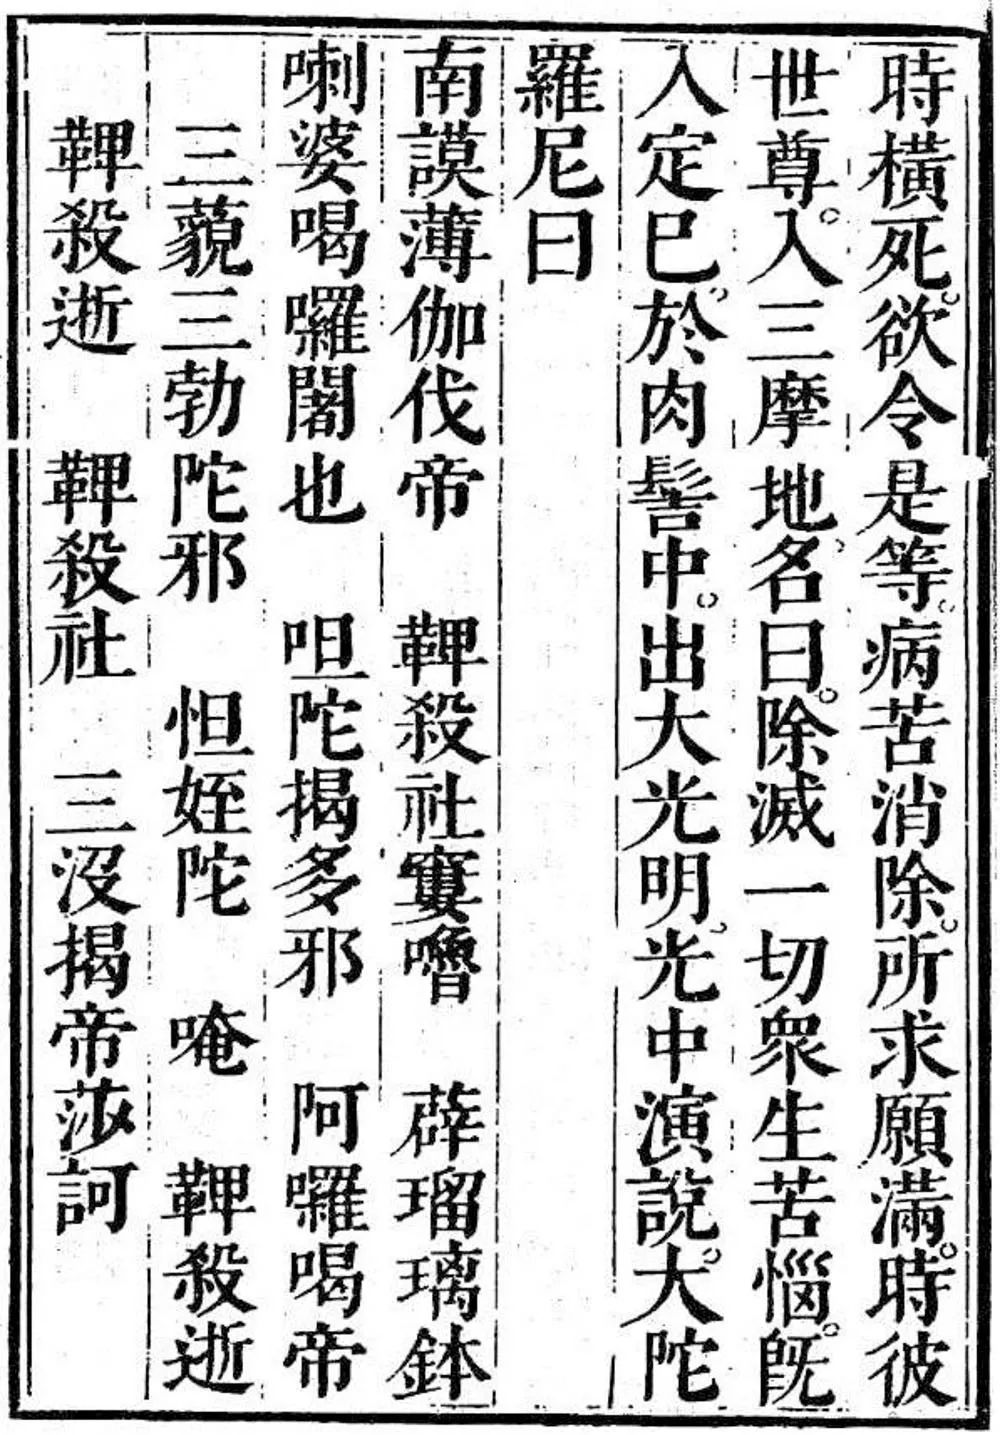 時橫死。欲令是等。病苦消除。所求願滿。時彼
世尊。入三摩地、名曰。除滅一切衆生苦惱。旣
入定已、於肉髻中。出大光明、光中演說。大陀
羅尼曰
南謨薄伽伐帝　鞞殺社窶嚕　薜瑠璃鉢
喇婆喝囉闍也　呾陀揭多邪　阿囉喝帝
三藐三勃陀邪　怛姪陀　唵　鞞殺逝
鞞殺逝　鞞殺社　三沒揭帝莎訶